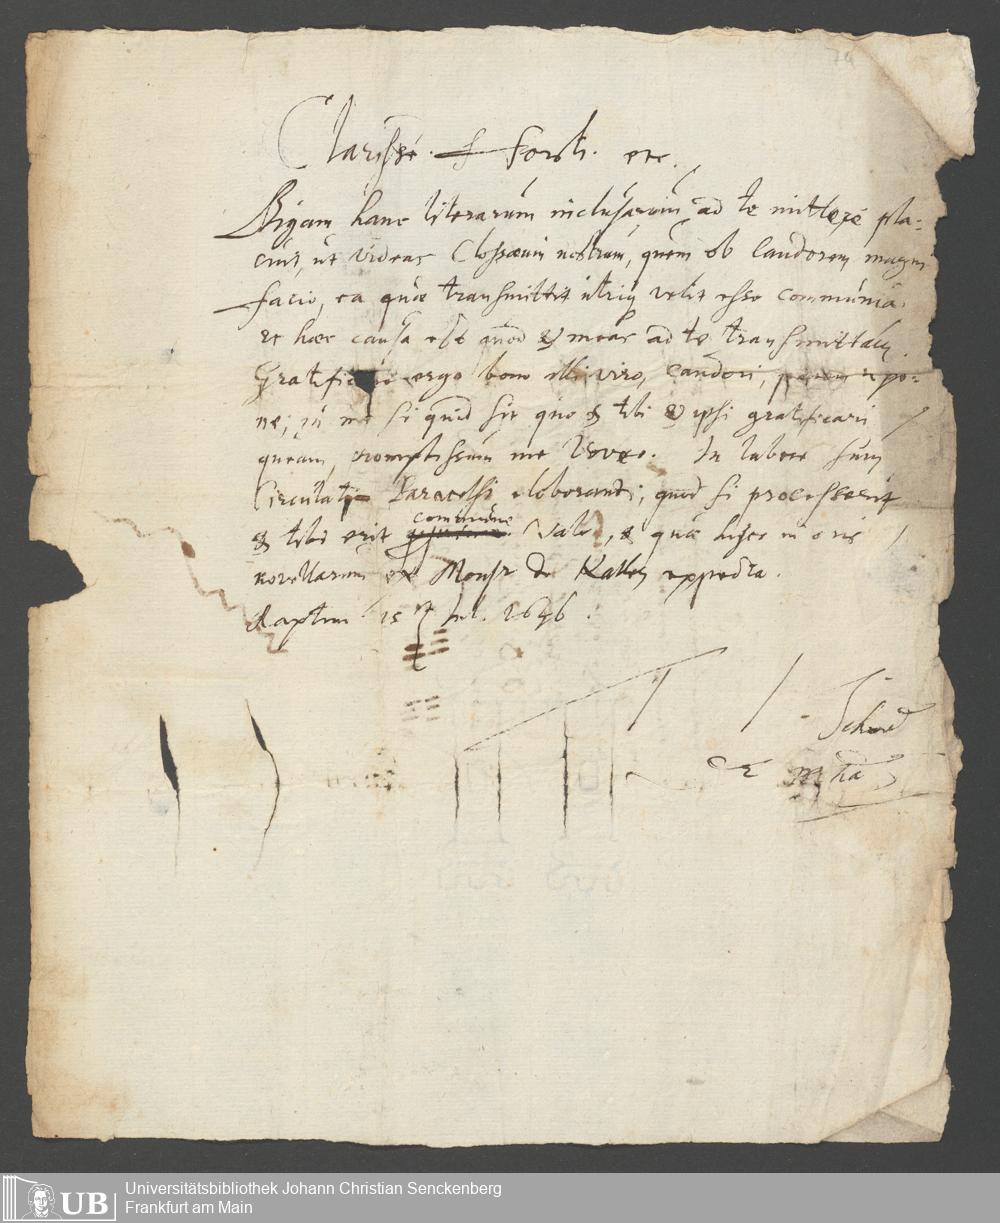 74
Clarissé. etc.
Bigam hanc literarum inclusarum ad te mittere pla-
cuit, ut videas Clossæum nostrum, quem ob Candorem magni
facio, ea quæ transmittit utriq velit esse communia.
et hæc causa est quod & meas ad te transmittam.
Gratificare ergo bono illi viro, Candori, repo-
ne; si quid sit quo & tibi & ipsi gratificari
queam, promptissimum me voveo. In labore sum
Circulati Paracelsi elaborandi; quod si processerit
& tibi erit commune. Vale, & quæ hisce in oris
novellarum ex Monsr de expecta.
Raptim 15 Jul. 1646.
Universitätsbibliothek Johann Christian Senckenberg
Frankfurt am Main
UB